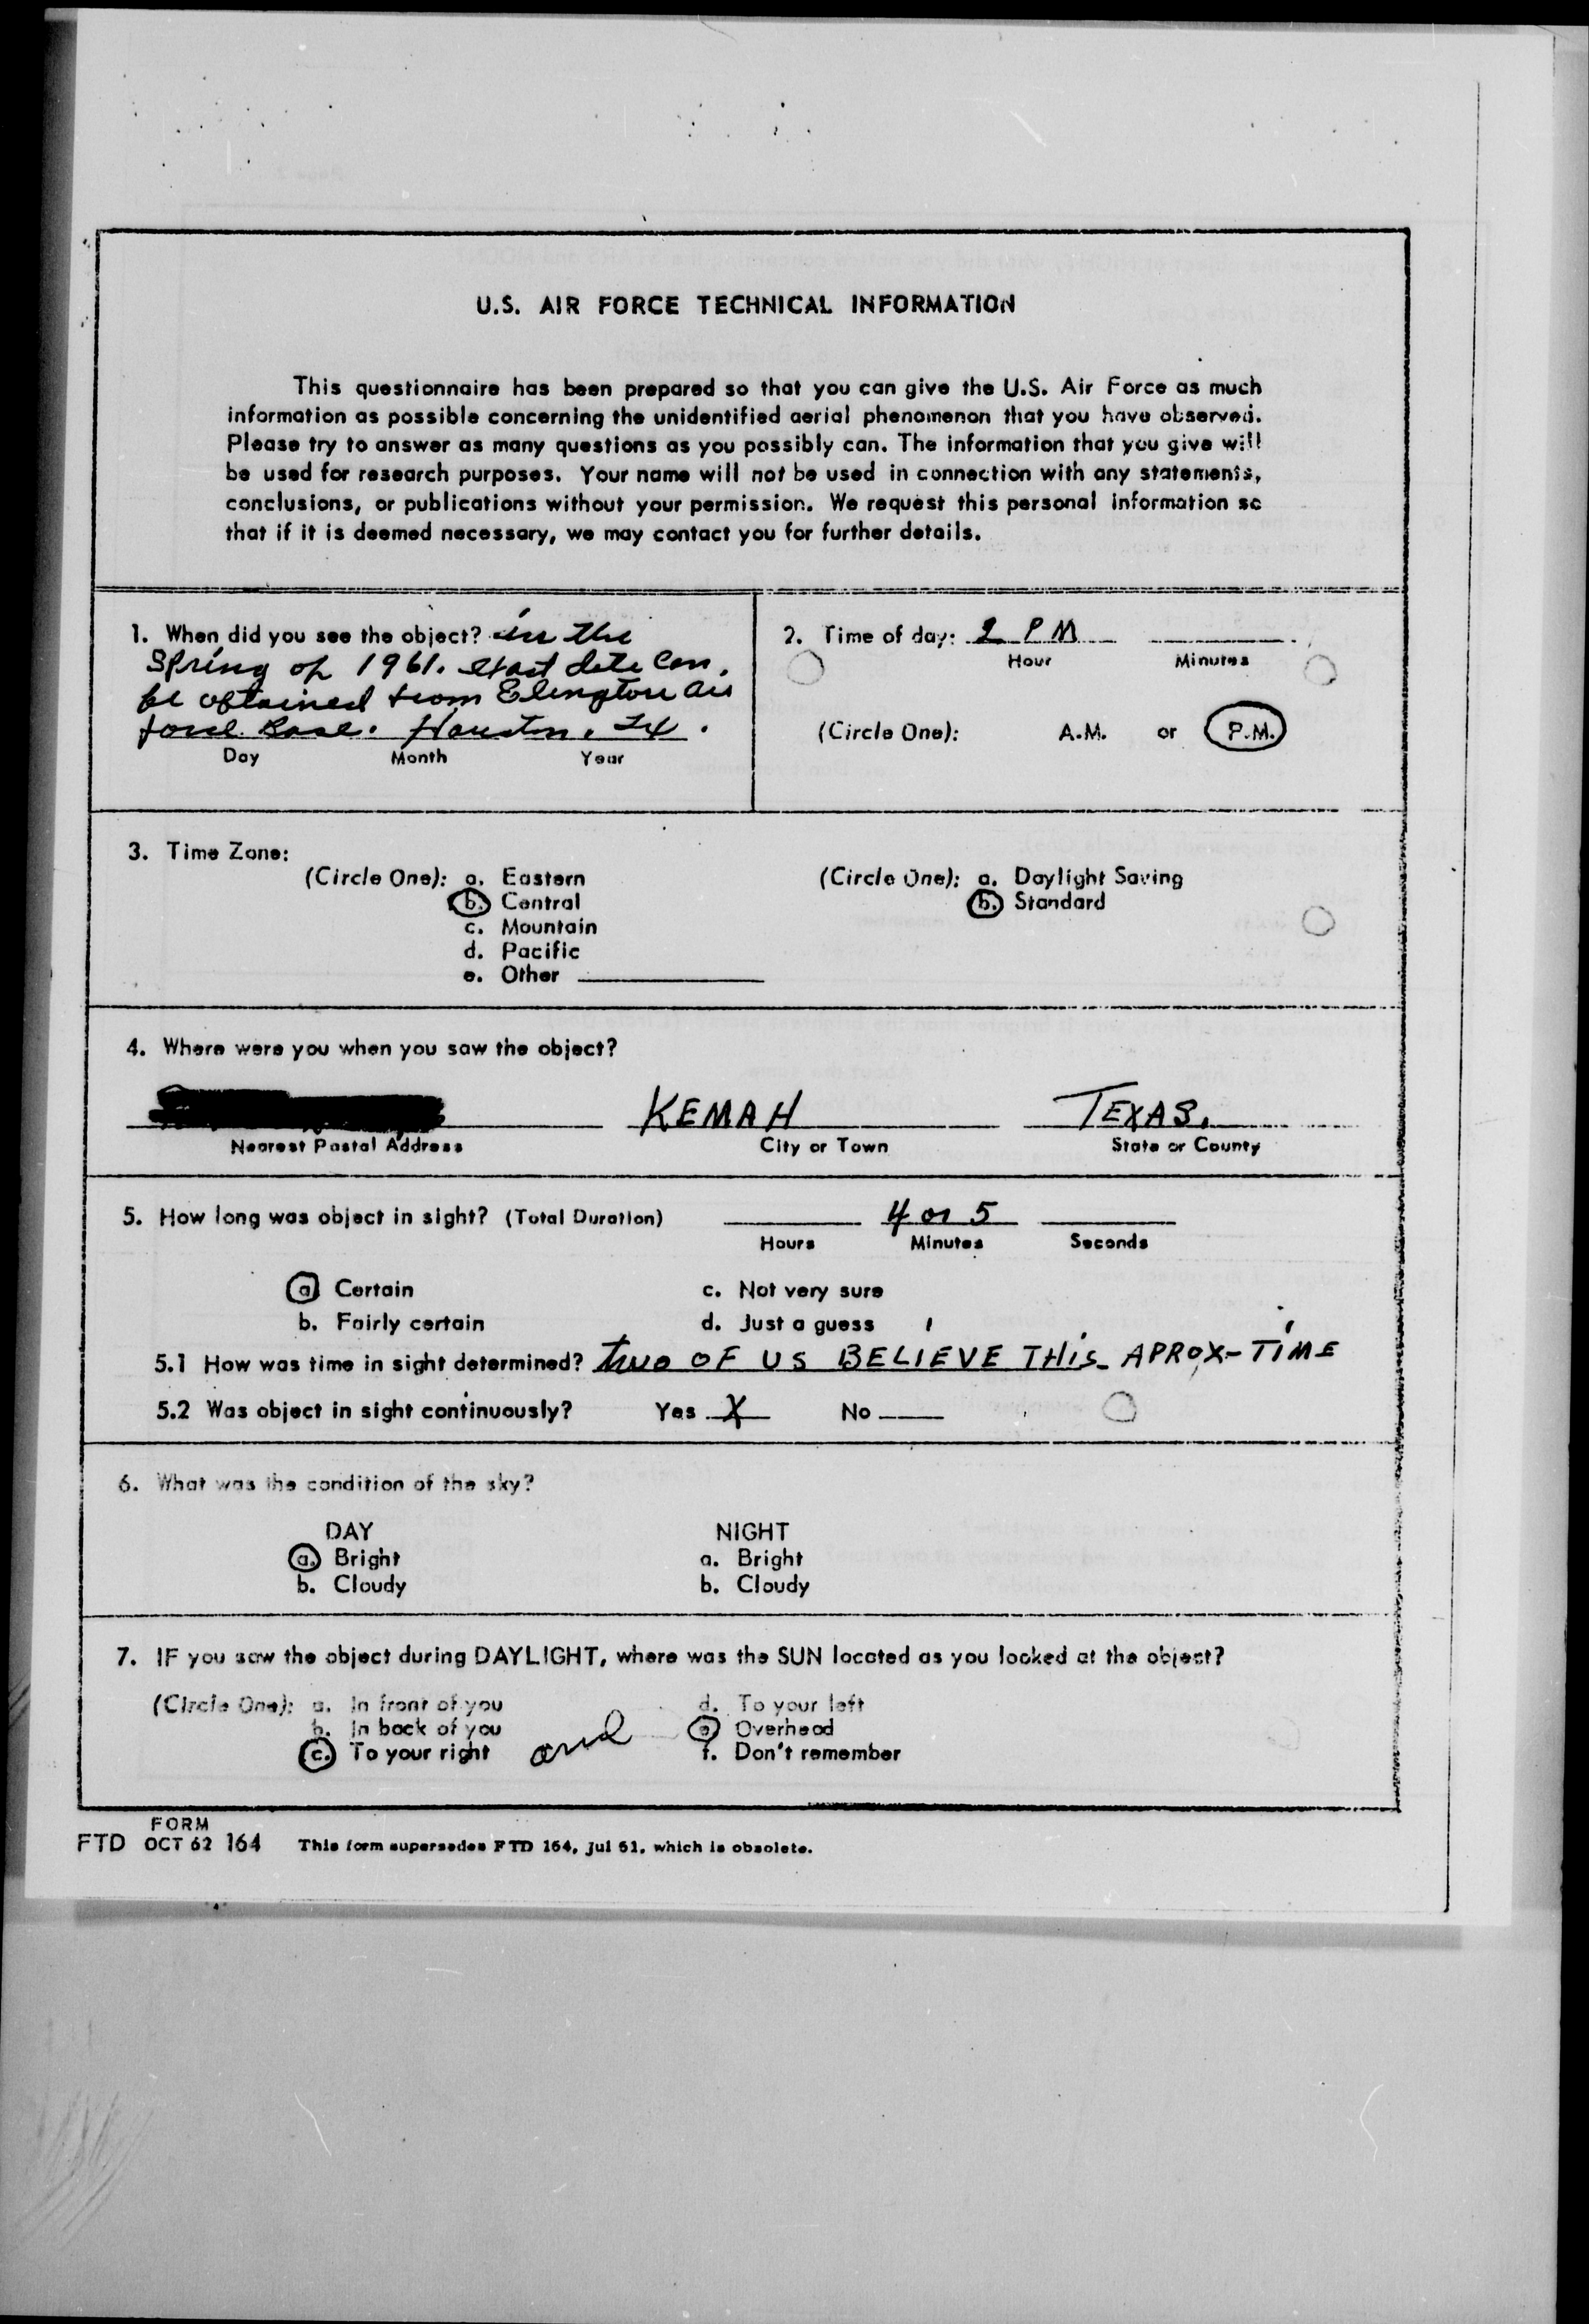 U.S. AIR FORCE TECHNICAL INFORMATION
This questionnaire has been prepared so that you can give the U.S. Air Force as much
information as possible concerning the unidentified aerial phenomenon that you have observed.
Please try to answer as many questions as you possibly can. The information that you give will
be used for research purposes. Your name will not be used in connection with any statements,
conclusions, or publications without your permission. We request this personal information so
that if it is deemed necessary, we may contact you for further details.
1. When did you see the object? in the
Spring of 1961. exact date can
be obtained from Elington air
force Base. Houston, Tx.
Day Month Year
2. Time of day: 2 PM
Hour Minutes
(Circle One): A.M. or P.M.
3. Time Zone:
(Circle One): a. Eastern
b. Central
c. Mountain
d. Pacific
e. Other
(Circle One): a. Daylight Saving
b. Standard
4. Where were you when you saw the object?
KEMAH TEXAS.
Nearest Postal Address City or Town State or County
5. How long was object in sight? (Total Duration) 4 or 5
Hours Minutes Seconds
a Certain c. Not very sure
b. Fairly certain d. Just a guess
5.1 How was time in sight determined? two OF US BELIEVE THIS APROX-TIME
5.2 Was object in sight continuously? Yes X No
6. What was the condition of the sky?
DAY NIGHT
a. Bright a. Bright
b. Cloudy b. Cloudy
7. IF you saw the object during DAYLIGHT, where was the SUN located as you looked at the object?
(Circle One): a. In front of you d. To your left
b. In back of you e Overhead
c. To your right and f. Don't remember
FORM
FTD OCT 62 164 This form supersedes FTD 164, Jul 61, which is obsolete.